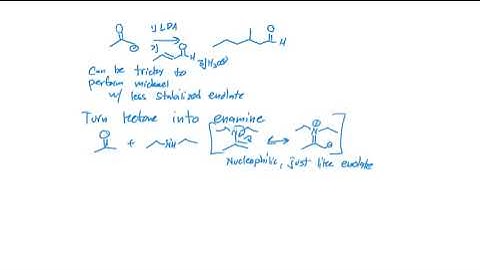 O 1) LDA O
2) O H 3) H3O⊕ H
Can be tricky to
perform michael
w/ less stabilized enolate
Turn ketone into enamine
O + NH N ↔ N
Nucleophilic, just like enolate